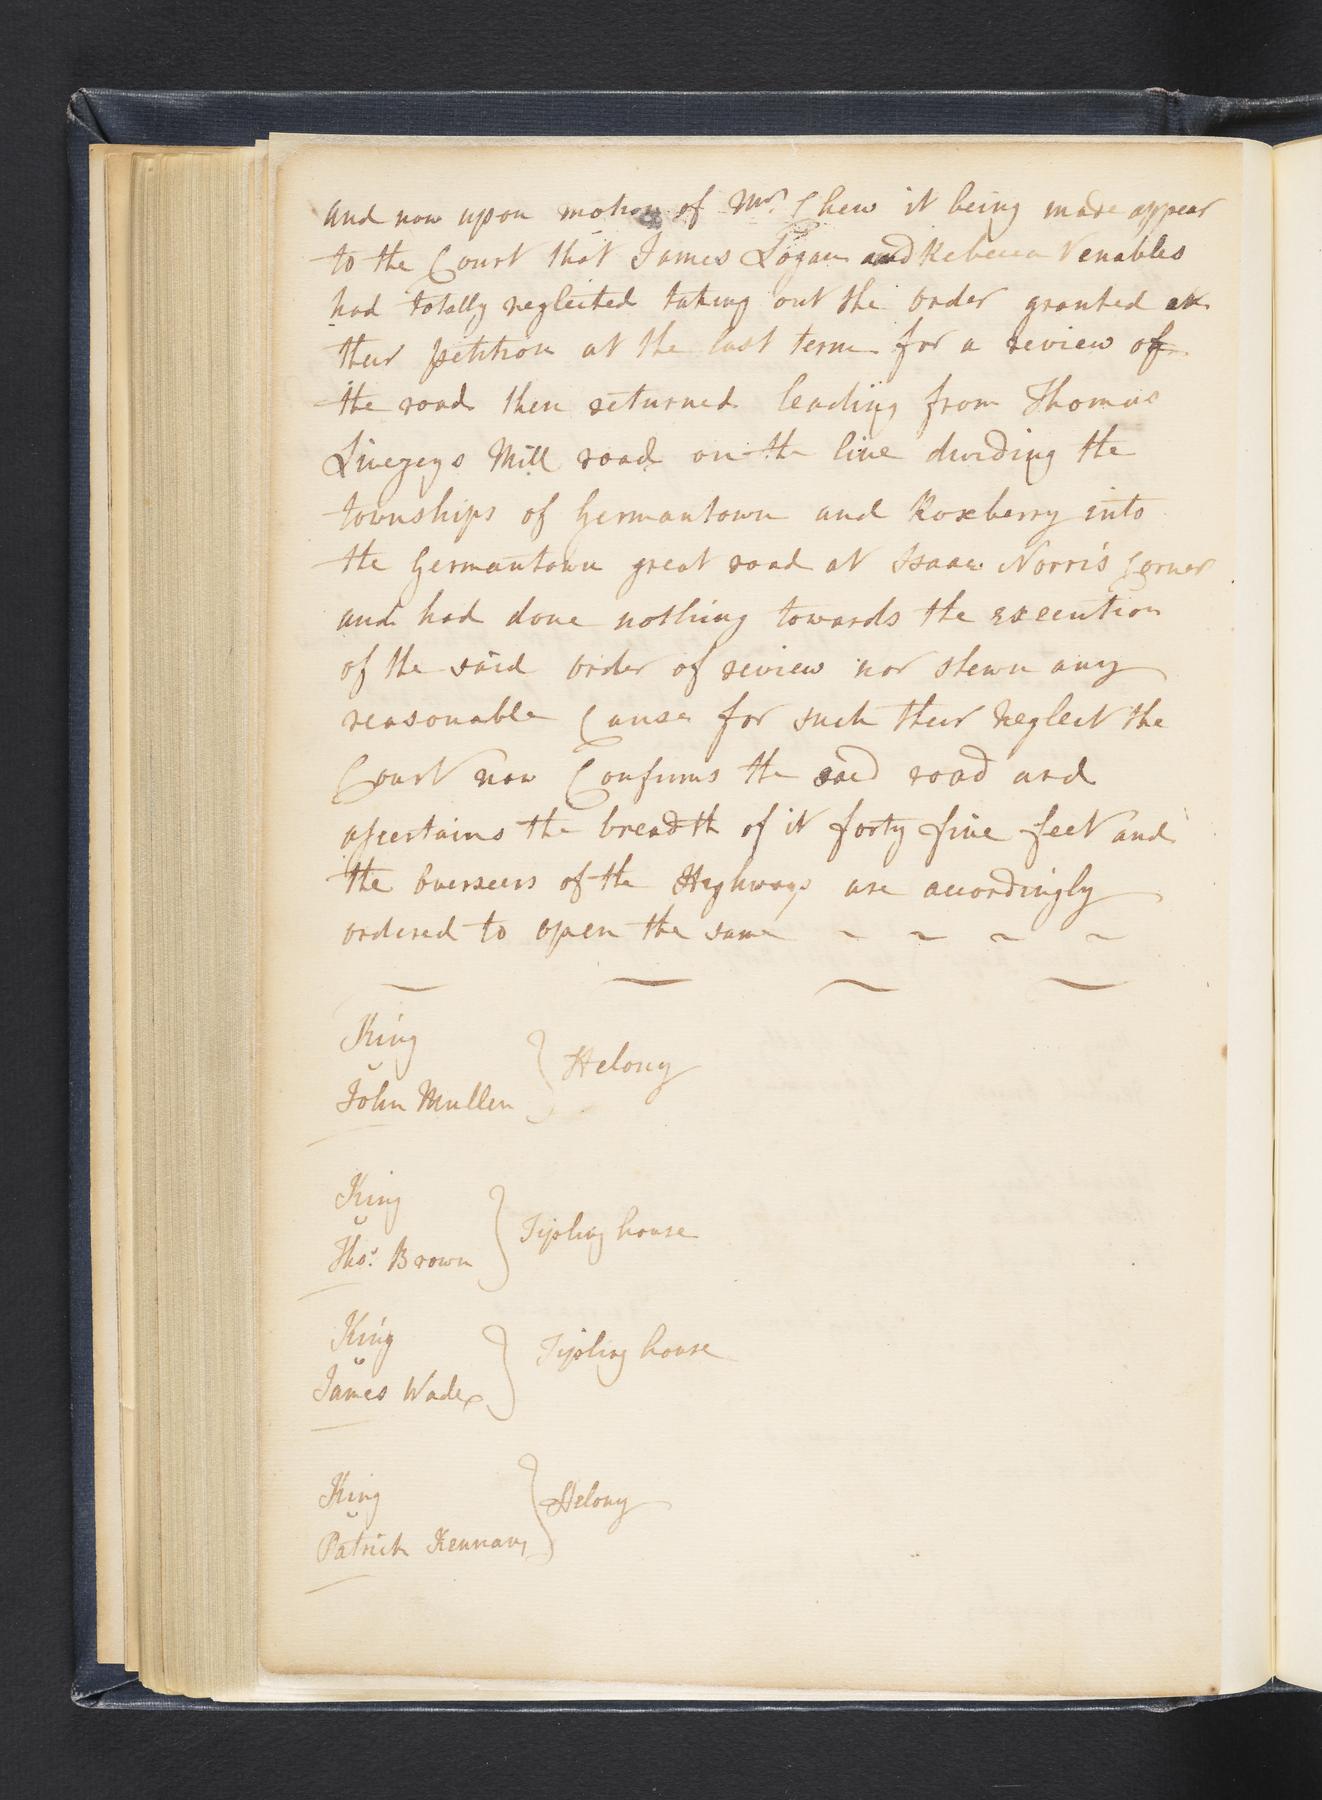 and now upon motion of Mr. Chew it being made appear
to the Court that James Logan and Rebecca Venables
had totally neglected taking out the order granted on
their petition at the last term for a review of
the road then returned leading from Thomas
Livezeys Mill road on the line dividing the
townships of Germantown and Roxberry into
the Germantown great road at Isaac Norris's Corner
and had done nothing towards the execution
of the said order of review nor shewn any
reasonable Cause for such their Neglect the
Court now Confirms the said road and
assertains the breadth of it forty five feet and
the overseers of the Highways are accordingly
ordered to open the same ~ ~ ~ ~
King
v
John Mullen } Felony
King
v
Thos. Brown } Tipling house
King
v
James Wade } Tipling house
King
v
Patrick Kennan } Felony